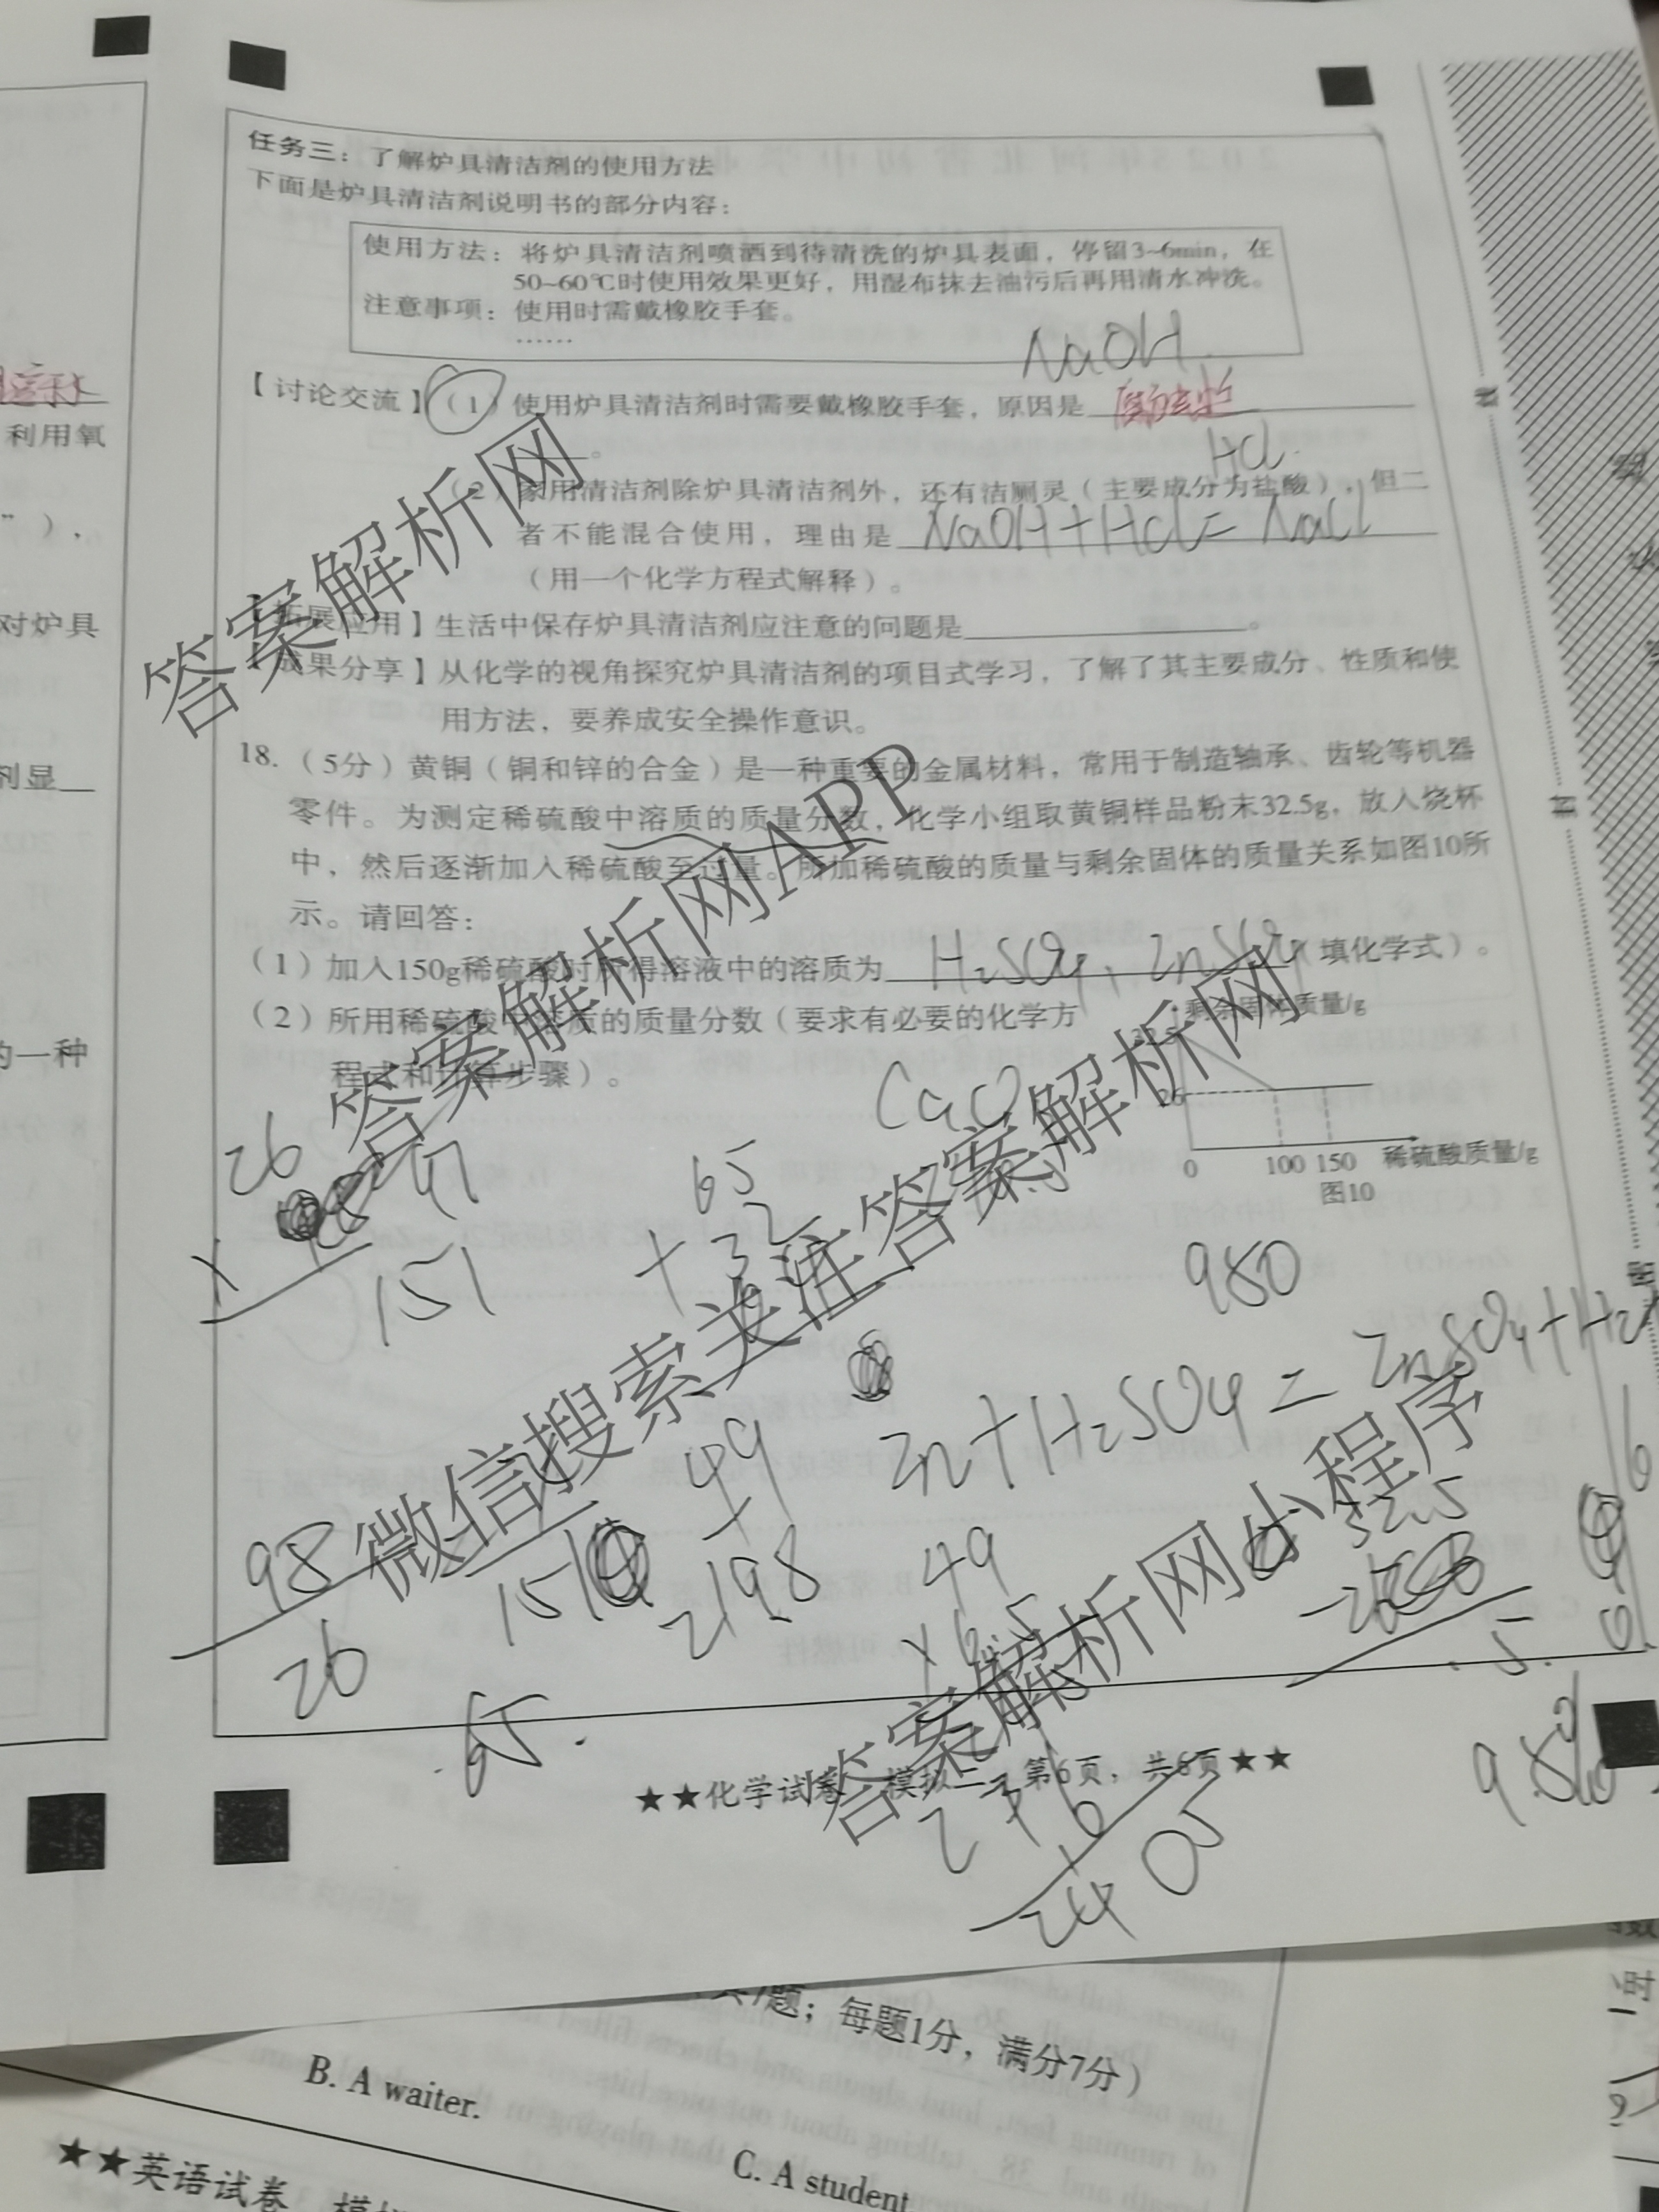 任务三：了解炉具清洁剂的使用方法
下面是炉具清洁剂说明书的部分内容：
使用方法：将炉具清洁剂喷洒到待清洗的炉具表面，停留3~6min，在
50~60℃时使用效果更好，用湿布抹去油污后再用清水冲洗。
注意事项：使用时需戴橡胶手套。
……
NaOH
【讨论交流】（1）使用炉具清洁剂时需要戴橡胶手套，原因是
。
HCl
（2）家用清洁剂除炉具清洁剂外，还有洁厕灵（主要成分为盐酸），但二
者不能混合使用，理由是 NaOH+HCl=NaCl
（用一个化学方程式解释）。
【拓展应用】生活中保存炉具清洁剂应注意的问题是。
【成果分享】从化学的视角探究炉具清洁剂的项目式学习，了解了其主要成分、性质和使
用方法，要养成安全操作意识。
18.（5分）黄铜（铜和锌的合金）是一种重要的金属材料，常用于制造轴承、齿轮等机器
零件。为测定稀硫酸中溶质的质量分数，化学小组取黄铜样品粉末32.5g，放入烧杯
中，然后逐渐加入稀硫酸至过量。所加稀硫酸的质量与剩余固体的质量关系如图10所
示。请回答：
（1）加入150g稀硫酸时所得溶液中的溶质为 H₂SO₄，ZnSO₄（填化学式）。
（2）所用稀硫酸中溶质的质量分数（要求有必要的化学方
程式和计算步骤）。
剩余固体质量/g
32.5
26
0 100 150 稀硫酸质量/g
图10
CaO
26
151
65
+32
980
Zn+H₂SO₄=ZnSO₄+H₂↑
49
2198
98
26
49
×6.5
32.5
65.
2405
★★化学试卷 模拟二 第6页，共6页★★
利用氧
”），
对炉具
剂显
的一种
线
封
密
共7题；每题1分，满分7分）
B. A waiter.
C. A student
★★英语试卷 模拟
答案解析网
答案解析网APP
答案解析网
微信搜索关注答案解析网
答案解析网小程序